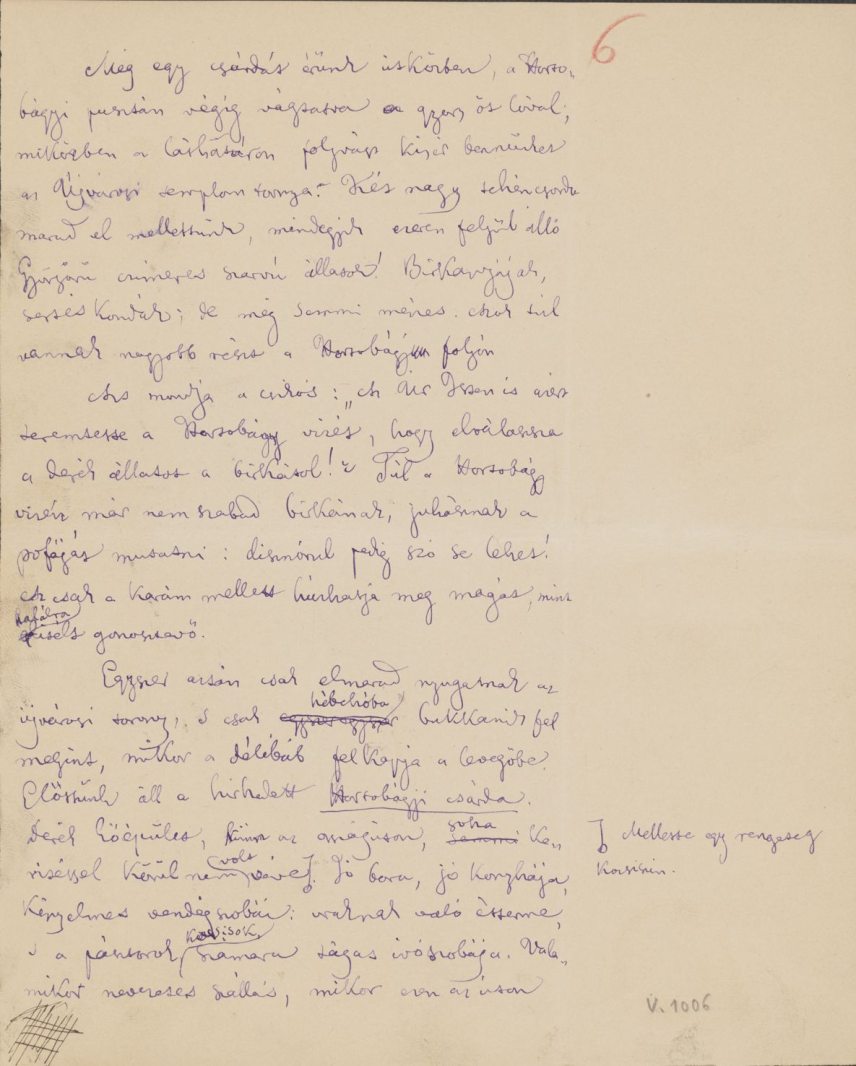 6
Még egy csárdás érünk útközben, a Horto-
bágyi pusztán végig vágtatva a gyors öt lóval;
miközben a láthatáron folyvást kisér bennünket
az Újvárosi templom tornya. Két nagy tehéncsorda
marad el mellettünk, mindegyik ezeren feljül álló
Gyönyörü czímeres szarvú állatok! Birkanyájak,
sertés kondák; de még semmi ménes. Azok túl
vannak nagyobb részt a Hortobágy folyón
Azt mondja a csikós: „Az Úr Isten is azért
teremtette a Hortobágy vizét, hogy elválassza
a derék állatot a birkától!" Túl a Hortobágy
vizén már nem szabad birkának, juhásznak a
pofáját mutatni: disznórul pedig szó se lehet!
Az csak a karám mellett húzhatja meg magát, mint
kalodába
itélt gonosztevő.
Egyszer aztán csak elmarad nyugatnak az
hébehóba
újvárosi torony, s csak egyszer egyszer bukkanik fel
megint, mikor a délibáb felkapja a levegőbe.
Előttünk áll a hirhedett Hortobágyi csárda.
Derék kőépület, künn az országúton, soha semmi ke-
ritéssel körül nem volt véve. Jó bora, jó konyhája,
Mellette egy rengeteg
kocsiszin.
kényelmes vendégszobái: uraknak való étterme,
kocsisok,
s a pásztorok számára tágas ivószobája. Vala-
mikor nevezetes szállás, mikor ezen az úton
V. 1006